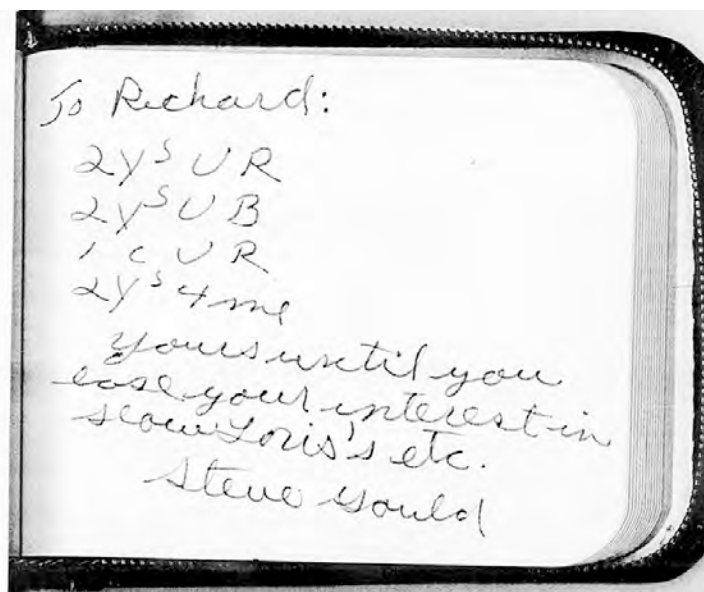 To Richard:
2Ys U R
2Ys U B
1 C U R
2Ys 4 me
yours until you
lose your interest in
slow Loris's etc.
Steve Gould